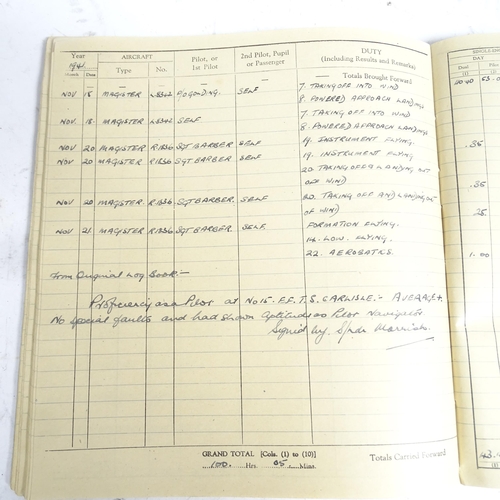 Year AIRCRAFT Pilot, or 2nd Pilot, Pupil DUTY
1941 1st Pilot or Passenger (Including Results and Remarks)
Month Date Type No.
— — — — — Totals Brought Forward
NOV 18 MAGISTER SELF 7. TAKING OFF INTO WIND
8. POWERED APPROACH LANDINGS
NOV 18 MAGISTER SELF 7. TAKING OFF INTO WIND
8. POWERED APPROACH LANDINGS
NOV 20 MAGISTER R1836 SGT BARBER SELF 19. INSTRUMENT FLYING.
NOV 20 MAGISTER R1836 SGT BARBER SELF 19. INSTRUMENT FLYING
20. TAKING OFF & LANDING OUT
OFF WIND
NOV 20 MAGISTER R1836 SGT BARBER SELF 20. TAKING OFF AND LANDING OUT
OF WIND
NOV 21 MAGISTER R1836 SGT BARBER SELF FORMATION FLYING.
14. LOW FLYING.
22. AEROBATICS.
From Original Log Book:-
Proficiency as a Pilot at No 15. E.F.T.S. CARLISLE:- AVERAGE +
No special faults and had shown aptitude as Pilot Navigator
Signed by. S/Ldr
GRAND TOTAL [Cols. (1) to (10)]
Hrs. 05 Mins. Totals Carried Forward
Dual
(1)
.35
.35
.25
1.00